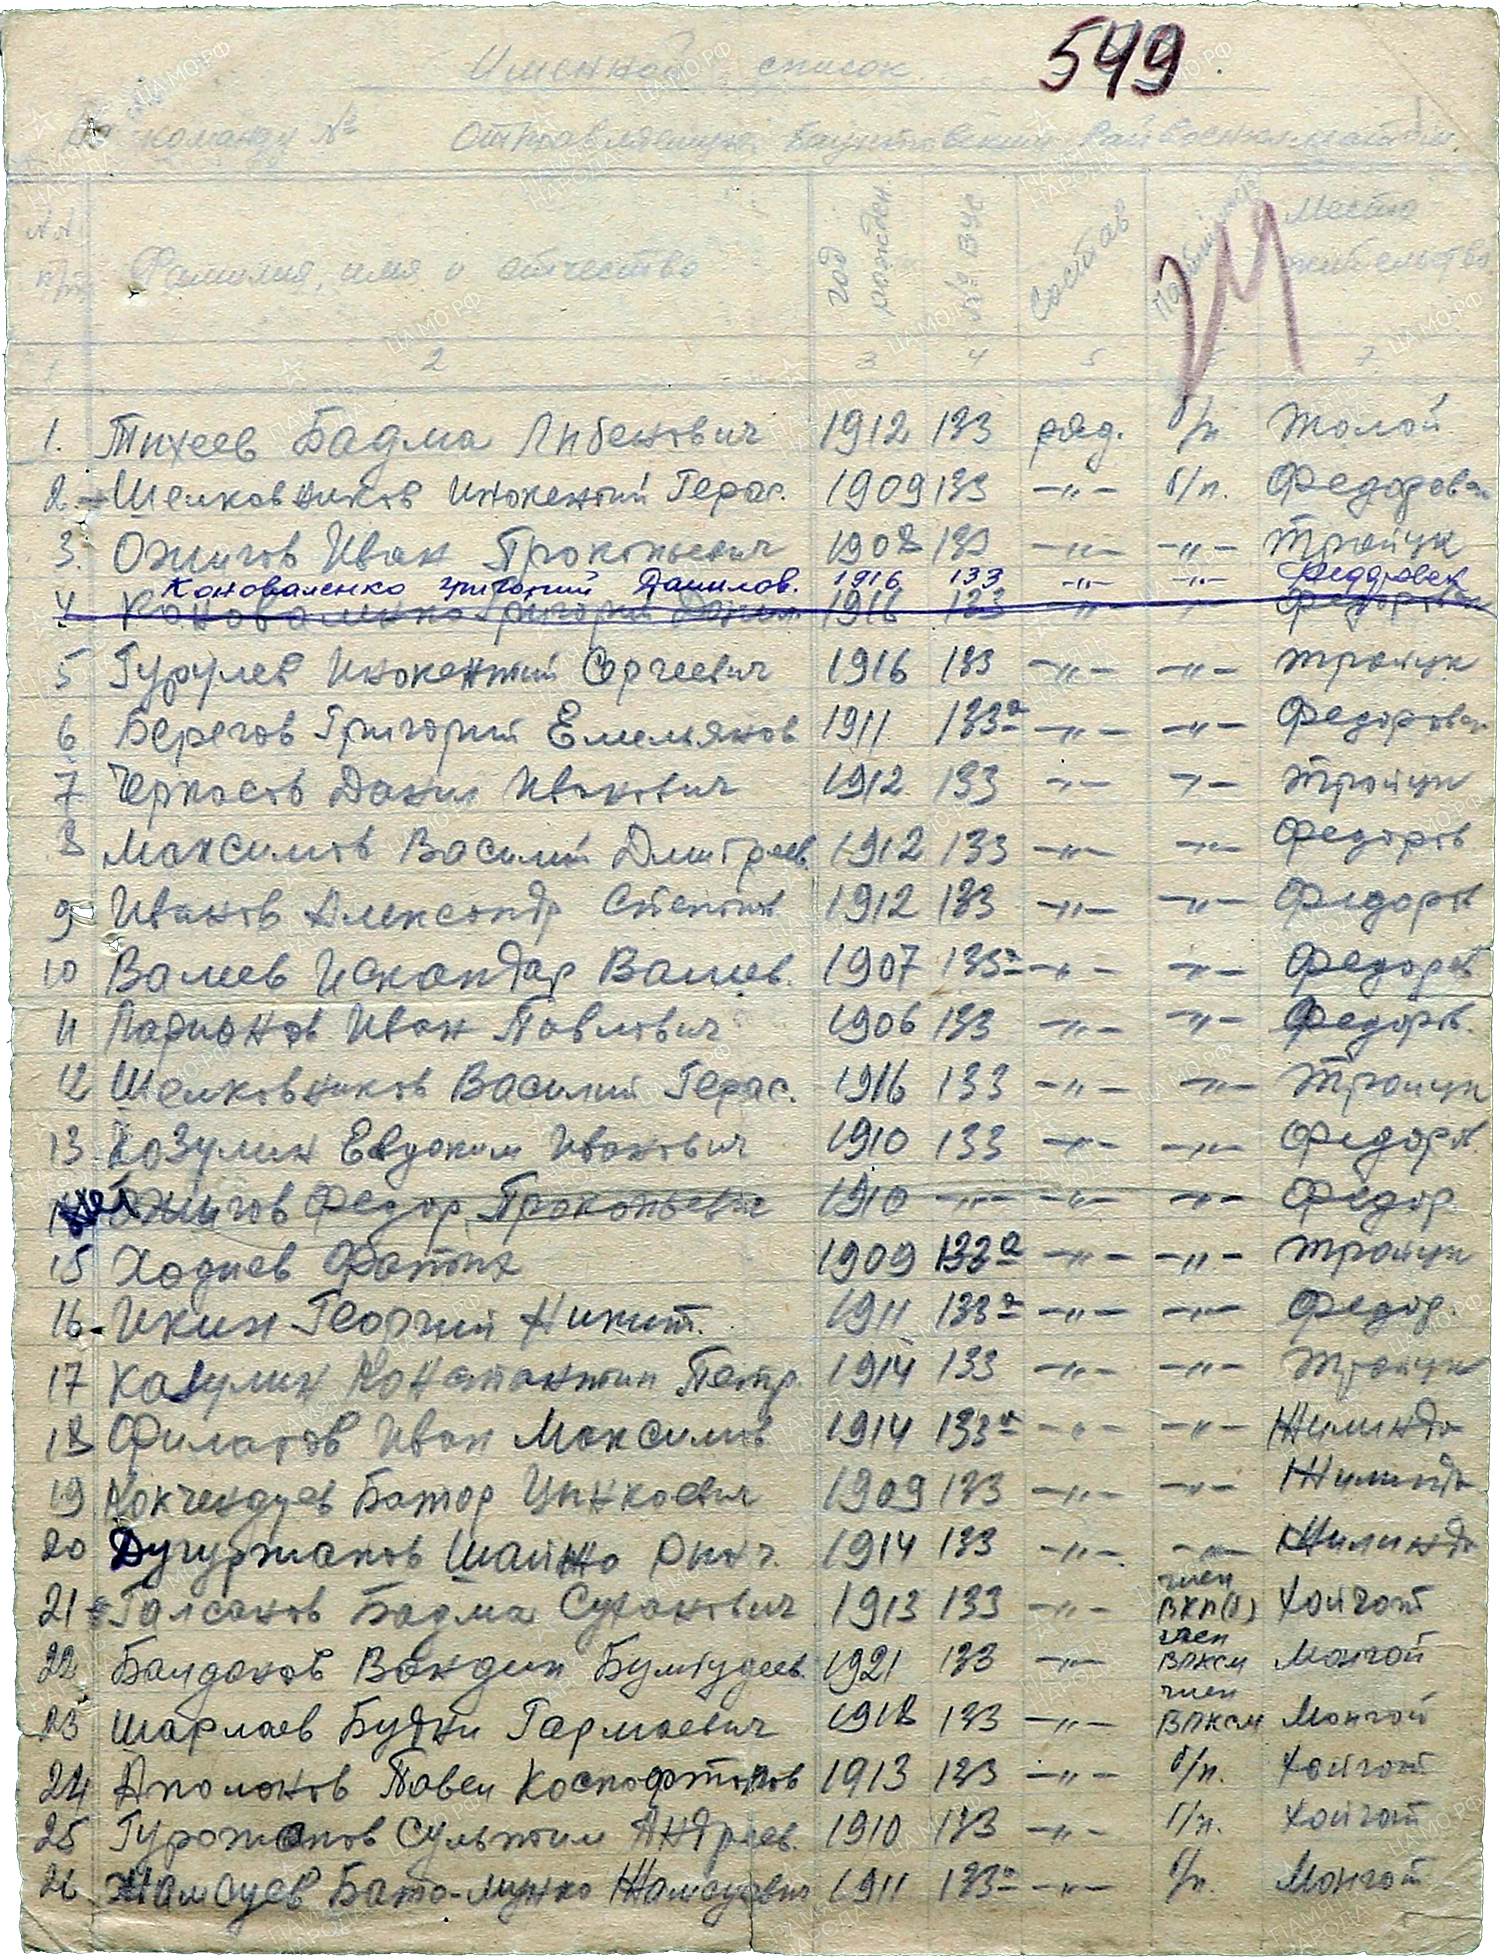 549
Именной список
на команду № отправляемую Баунтовским Райвоенкоматом.
№№ п/п Фамилия, имя и отчество год рожден. № ВУС Состав Партийность Место жительства
1 2 3 4 5 6 7
1. Тихеев Бадма Либенович 1912 133 ряд. б/п. Жолой
2 Шелковников Инокентий Герас. 1909 133 -"- б/п. Федоровск
3. Ожигов Иван Прокопьевич 1908 133 -"- -"- Тройцк
Коноваленко Григорий Данилов. 1916 133 -"- -"- Федоровск
4 Коноваленко Григорий Данил 1916 133 " " Федоровск
5 Гурулев Инокентий Сергеевич 1916 133 -"- -"- Тройцк
6 Берегов Григорий Емельянов 1911 133а -"- -"- Федоровск
7 Черпасов Данил Иванович 1912 133 -"- -"- Тройцк
8 Максимов Василий Дмитриев 1912 133 -"- -"- Федоров
9 Иванов Александр Степанов 1912 133 -"- -"- Федоров
10 Валеев Искандар Валеев. 1907 133а -"- -"- Федоров
11 Ларионов Иван Павлович 1906 133 -"- -"- Федоров.
12 Шелковников Василий Герас. 1916 133 -"- -"- Тройцк
13 Козулин Евдоким Иванович 1910 133 -"- -"- Федоров.
Ожигов Федор Прокопьевич 1910 -"- -"- -"- Федор.
15 Ходиев Фатых 1909 133а -"- -"- Тройцк
16. Икин Георгий Никит. 1911 133а -"- -"- Федор.
17 Козулин Константин Петр. 1914 133 -"- -"- Тройцк
18 Филатов Иван Максимов 1914 133а -"- -"- Жилинда
19 Кокчендуев Батор Цынкоевич 1909 133 -"- -"- Жилинда
20 Дугуржапов Шайжо 1914 133 -"- -"- Жилинда
21 Галсанов Бадма Суханович 1913 133 -"- член ВКП(б) Хойгот
22 Балданов Вандин Бумтудеев. 1921 133 -"- член ВЛКСМ Монгой
23 Шарлаев Будни Гармаевич 1918 133 -"- член ВЛКСМ Монгой
24 Аполонов Павел 1913 133 -"- б/п. Хойгот
25 Гурожапов Сультим Андреев. 1910 133 -"- б/п. Хойгот
26 Жамсуев Бато-Мунко Жамсуевич 1911 133а -"- б/п. Монгой